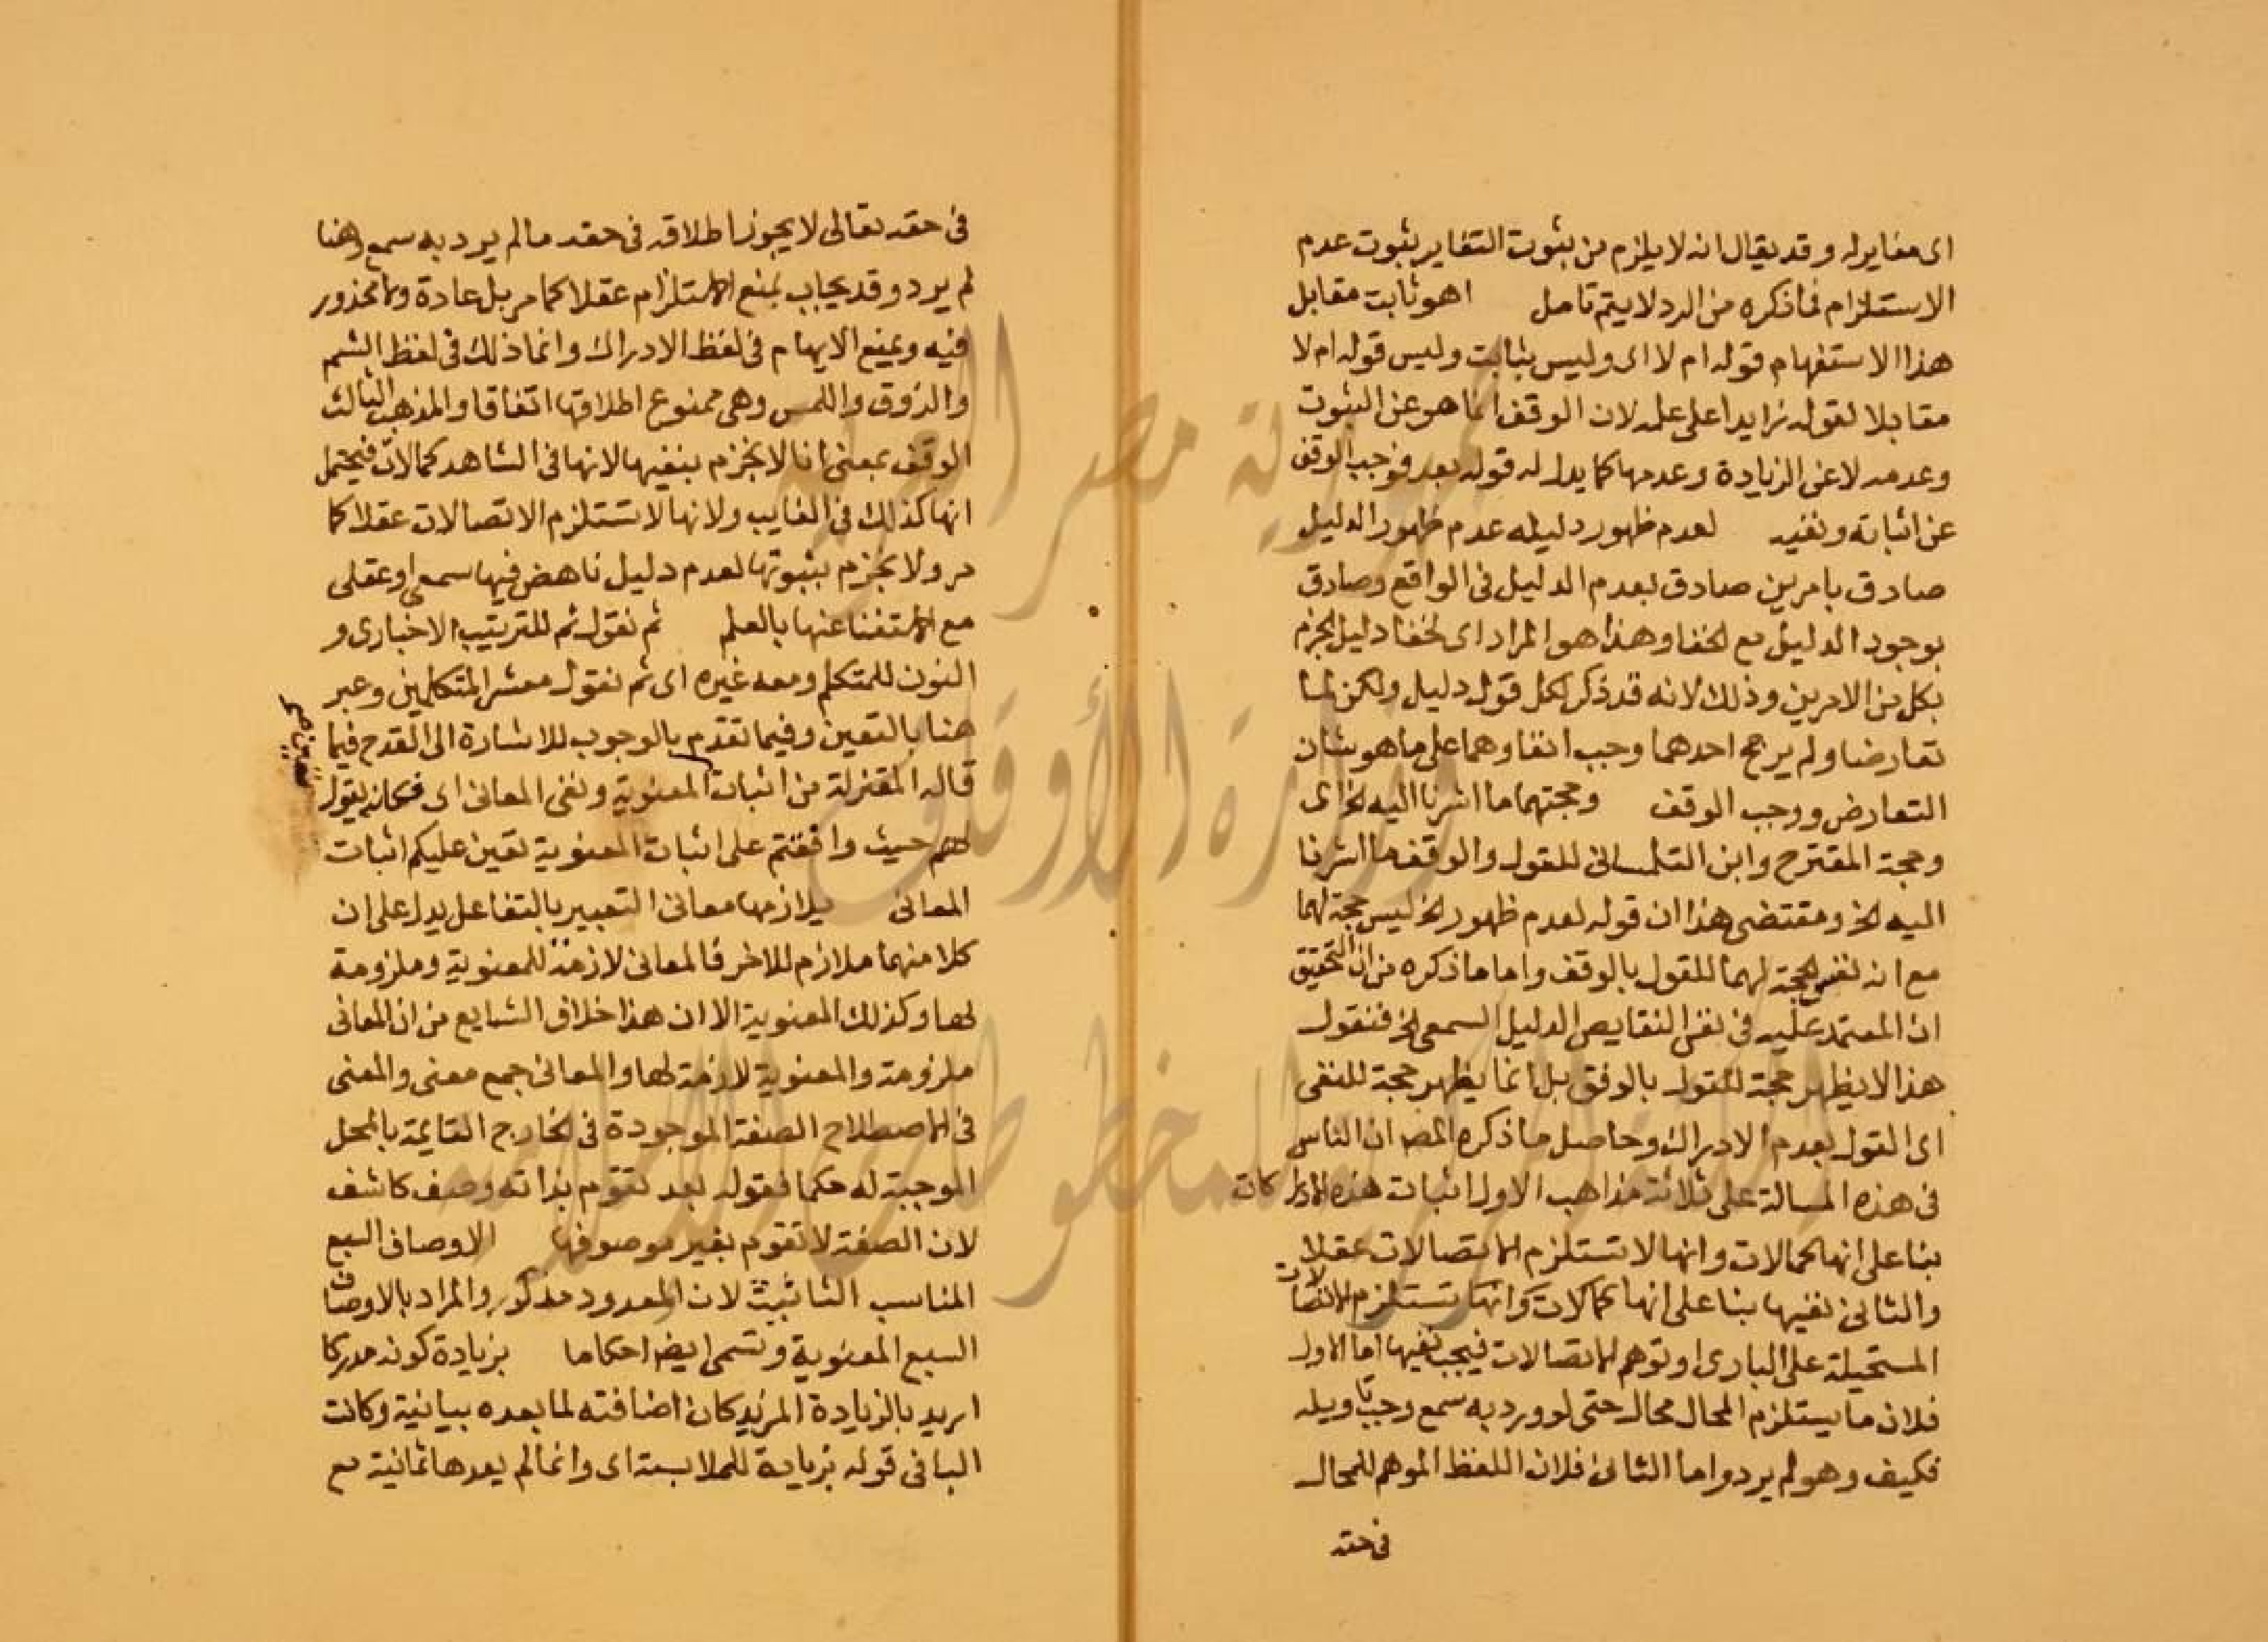 اى مغايرله وقد يقال انه لا يلزم من ثبوت التغاير ثبوت عدم
الاستلزام فما ذكره من الرد لا يتم تامل اهو ثابت مقابل
هذا الاستفهام قوله ام لا اى وليس بثابت وليس قوله ام لا
مقابلا لقوله زايدا على علمه لان الوقف انما هو عن الثبوت
وعدمه لا عن الزيادة وعدمها كما يدل له قوله بعد فوجب الوقف
عن اثباته ونفيه لعدم ظهور دليله عدم ظهور الدليل
صادق بامرين صادق بعدم الدليل فى الواقع وصادق
بوجود الدليل مع الخفا وهذا هو المراد اى لخفا دليل الجزم
بكل من الامرين وذلك لانه قد ذكر لكل قول دليل ولكن لما
تعارضا ولم يرجح احدهما وجب انفاوهما على ما هو شان
التعارض ووجب الوقف وحجتهما ما اشرنا اليه الخ اى
وحجة المقترح وابن التلمسانى للقول والوقف ما اشرنا
اليه الخ ومقتضى هذا ان قوله لعدم ظهور الخ ليس حجة لهما
مع انه نفس الحجة لهما للقول بالوقف واما ما ذكره من ان التحقيق
ان المعتمد عليه فى نفى النقايص الدليل السمعى الخ فنقول
هذا لا يظهر حجة للقول بالوقف بل انما يظهر حجة للنفى
اى القول بعدم الادراك وحاصل ما ذكره المص ان الناس
فى هذه المسالة على ثلاثة مذاهب الاول اثبات هذه الادراكات
بنا على انها كمالات وانها لا تستلزم الاتصالات عقلا
والثانى نفيها بنا على انها كمالات وانها تستلزم الاتصالات
المستحيلة على البارى او توهم الاتصالات فيجب نفيها اما الاول
فلان ما يستلزم المحال محال حتى لو ورد به سمع وجب تاويله
فكيف وهو لم يرد واما الثانى فلان اللفظ الموهم للمحال
فى حقه
فى حقه تعالى لا يجوز اطلاقه فى حقه ما لم يرد به سمع وهنا
لم يرد وقد يجاب بمنع الاستلزام عقلا كما مر بل عادة ولا محذور
فيه وبمنع الايهام فى لفظ الادراك وانما ذلك فى لفظ الشم
والذوق واللمس وهى ممنوع اطلاقها اتفاقا والمذهب الثالث
الوقف بمعنى انا لا نجزم بنفيها لانها فى الشاهد كمالات فيحتمل
انها كذلك فى الغايب ولانها لا تستلزم الاتصالات عقلا كما
مر ولا نجزم بثبوتها لعدم دليل ناهض فيها سمعى او عقلى
مع الاستغنا عنها بالعلم ثم نقول ثم للترتيب الاخبارى و
النون للمتكلم ومعه غيره اى ثم نقول معشر المتكلمين وعبر
هنا بالتعين وفيما تقدم بالوجوب للاشارة الى القدح فيما
قاله المعتزلة من اثبات المعنوية ونفى المعانى اى فكانه يقول
لهم حيث وافقتم على اثبات المعنوية تعين عليكم اثبات
المعانى يلازمها معانى التعبير بالتفاعل يدل على ان
كلا منهما ملازم للاخر فالمعانى لازمة للمعنوية وملزومة
لها وكذلك المعنوية الا ان هذا خلاف الشايع من ان المعانى
ملزومة والمعنوية لازمة لها والمعانى جمع معنى والمعنى
فى الاصطلاح الصفة الموجودة فى الخارج القايمة بالمحل
الموجبة له حكما فقوله بعد تقوم بذاته وصف كاشف
لان الصفة لا تقوم بغير موصوفها الاوصاف السبع
المناسب التانيث لان المعدود مذكور والمراد بالاوصاف
السبع المعنوية وتسمى ايضا احكاما بزيادة كونه مدركا
اريد بالزيادة المزيد كان اضافته لما بعده بيانية وكانت
البا فى قوله بزيادة للملابسة اى وانما لم يعدها ثمانية مع